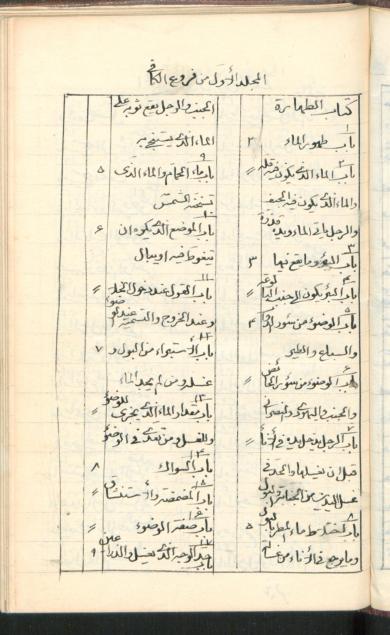 المجلد الاول من فروع الكافي
كتاب الطهارة
١
باب طهور الماء ٢
٢
باب الماء الذي يكون فيه قلة =
والماء الذي يكون فيه الجيف
والرجل ياتي الماء ويده قذرة
٣
باب البئر وما يقع فيها ٣
٤
باب البئر تكون الى جنب البالوعة =
٥
باب الوضوء من سؤر الدواب ٤
والسباع والطير
٦
باب الوضوء من سؤر الحائض =
والجنب واليهودي والنصراني
٧
باب الرجل يدخل يده في الاناء =
قبل ان يغسلها والحد في
غسل اليدين من الجنابة والبول
٨
باب اختلاط ماء المطر بالبول ٥
وما يرجع في الاناء من غسالة
الجنب والرجل يقع ثوبه على
الماء الذي يستنجي به
٩
باب ماء الحمام والماء الذي ٥
تسخنه الشمس
١٠
باب الموضع الذي يكره ان ٦
يتغوط فيه او يبال
١١
باب القول عند دخول الخلاء =
وعند الخروج والتسمية عند الوضوء
١٢
باب الاستبراء من البول و ٧
غسله ومن لم يجد الماء
١٣
باب مقدار الماء الذي يجزي للوضوء =
والغسل ومن تعدى في الوضوء
١٤
باب السواك ٨
١٥
باب المضمضة والاستنشاق =
١٦
باب صفة الوضوء =
١٧
باب حد الوجه الذي يغسل والذراعين ٩